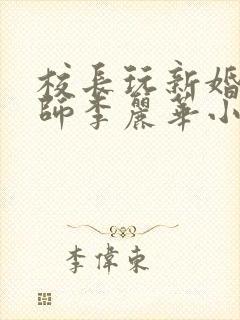 校長玩新婚
師李麗華小
李偉東